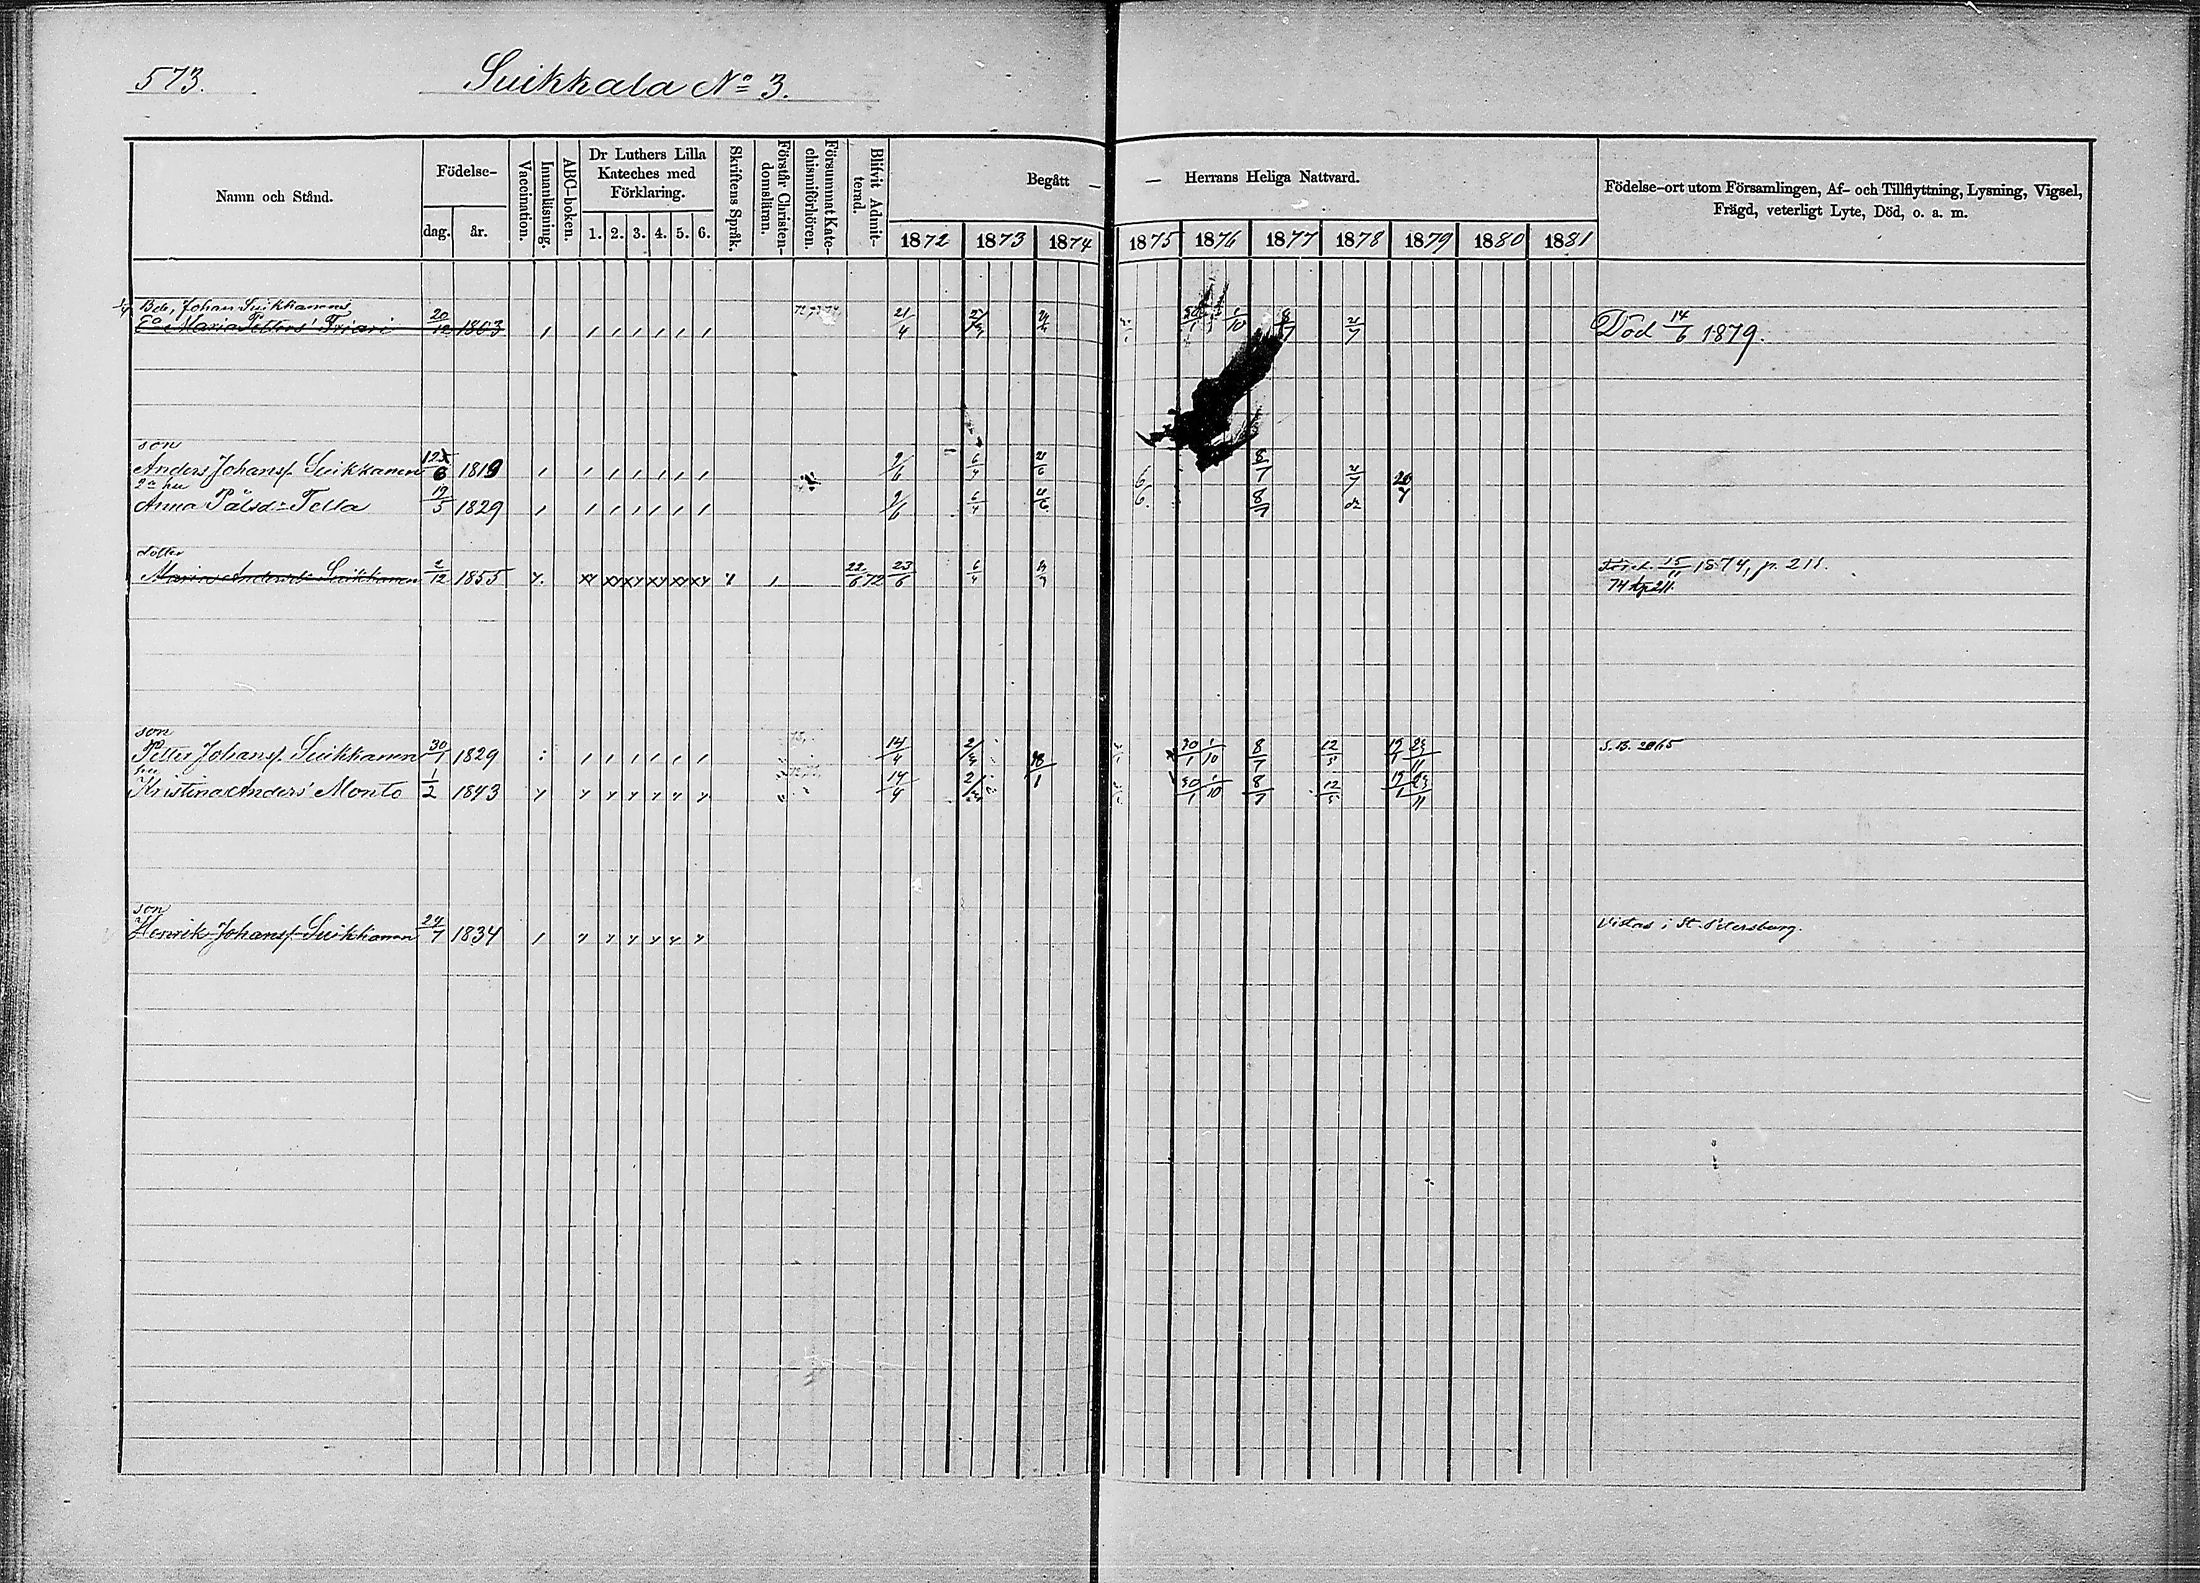 573.
Suikkala No 3.
Namn och Stånd.
Födelse-
dag.
år.
Vaccination.
Innanläsning.
ABC-boken.
Dr Luthers Lilla
Kateches med
Förklaring.
1. 2. 3. 4. 5. 6.
Skriftens Språk.
Förstår Christen-
domsläran.
Försummat Kate-
chismiförhören.
Blifvit Admit-
terad.
Begått —
— Herrans Heliga Nattvard.
1872 1873 1874 1875 1876 1877 1878 1879 1880 1881
Födelse-ort utom Församlingen, Af- och Tillflyttning, Lysning, Vigsel,
Frägd, veterligt Lyte, Död, o. a. m.
Johan Suikkanens
Maria Petters Friari 20/12 1803 21/4 8/7 21/7 Död 14/6 1879.
son
Anders Johansf. Suikkanen 6 1819 9/6 6/4 21/6 6/6 8/7 21/7
2a hu
Anna Pålsd. Tella 19/5 1829 9/6 6/4 8/7
dotter
Maria Andersd. Suikkanen 2/12 1855 22/6 72 23/6 6/4 15/11 1874, p. 211.
son
Petter Johansf. Suikkanen 30/1 1829 14/4 30/1 1/10 8/7 12/5 19/1 23/11 S.B. 2065
hu
Kristina Anders Monto 1/2 1843 14/4 30/1 1/10 8/7 12/5 19/1 23/11
son
Henrik Johansf. Suikkanen 24/7 1834 Vistas i St. Petersburg.